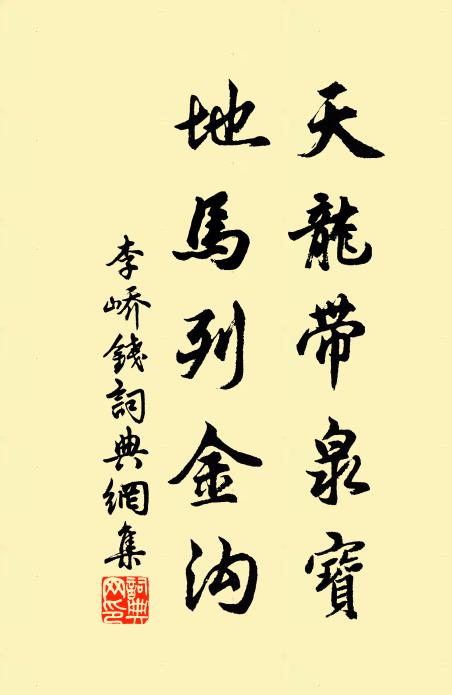 天龍带泉寶
地馬列金沟
李嶠錢詞典網集
詞典
网印